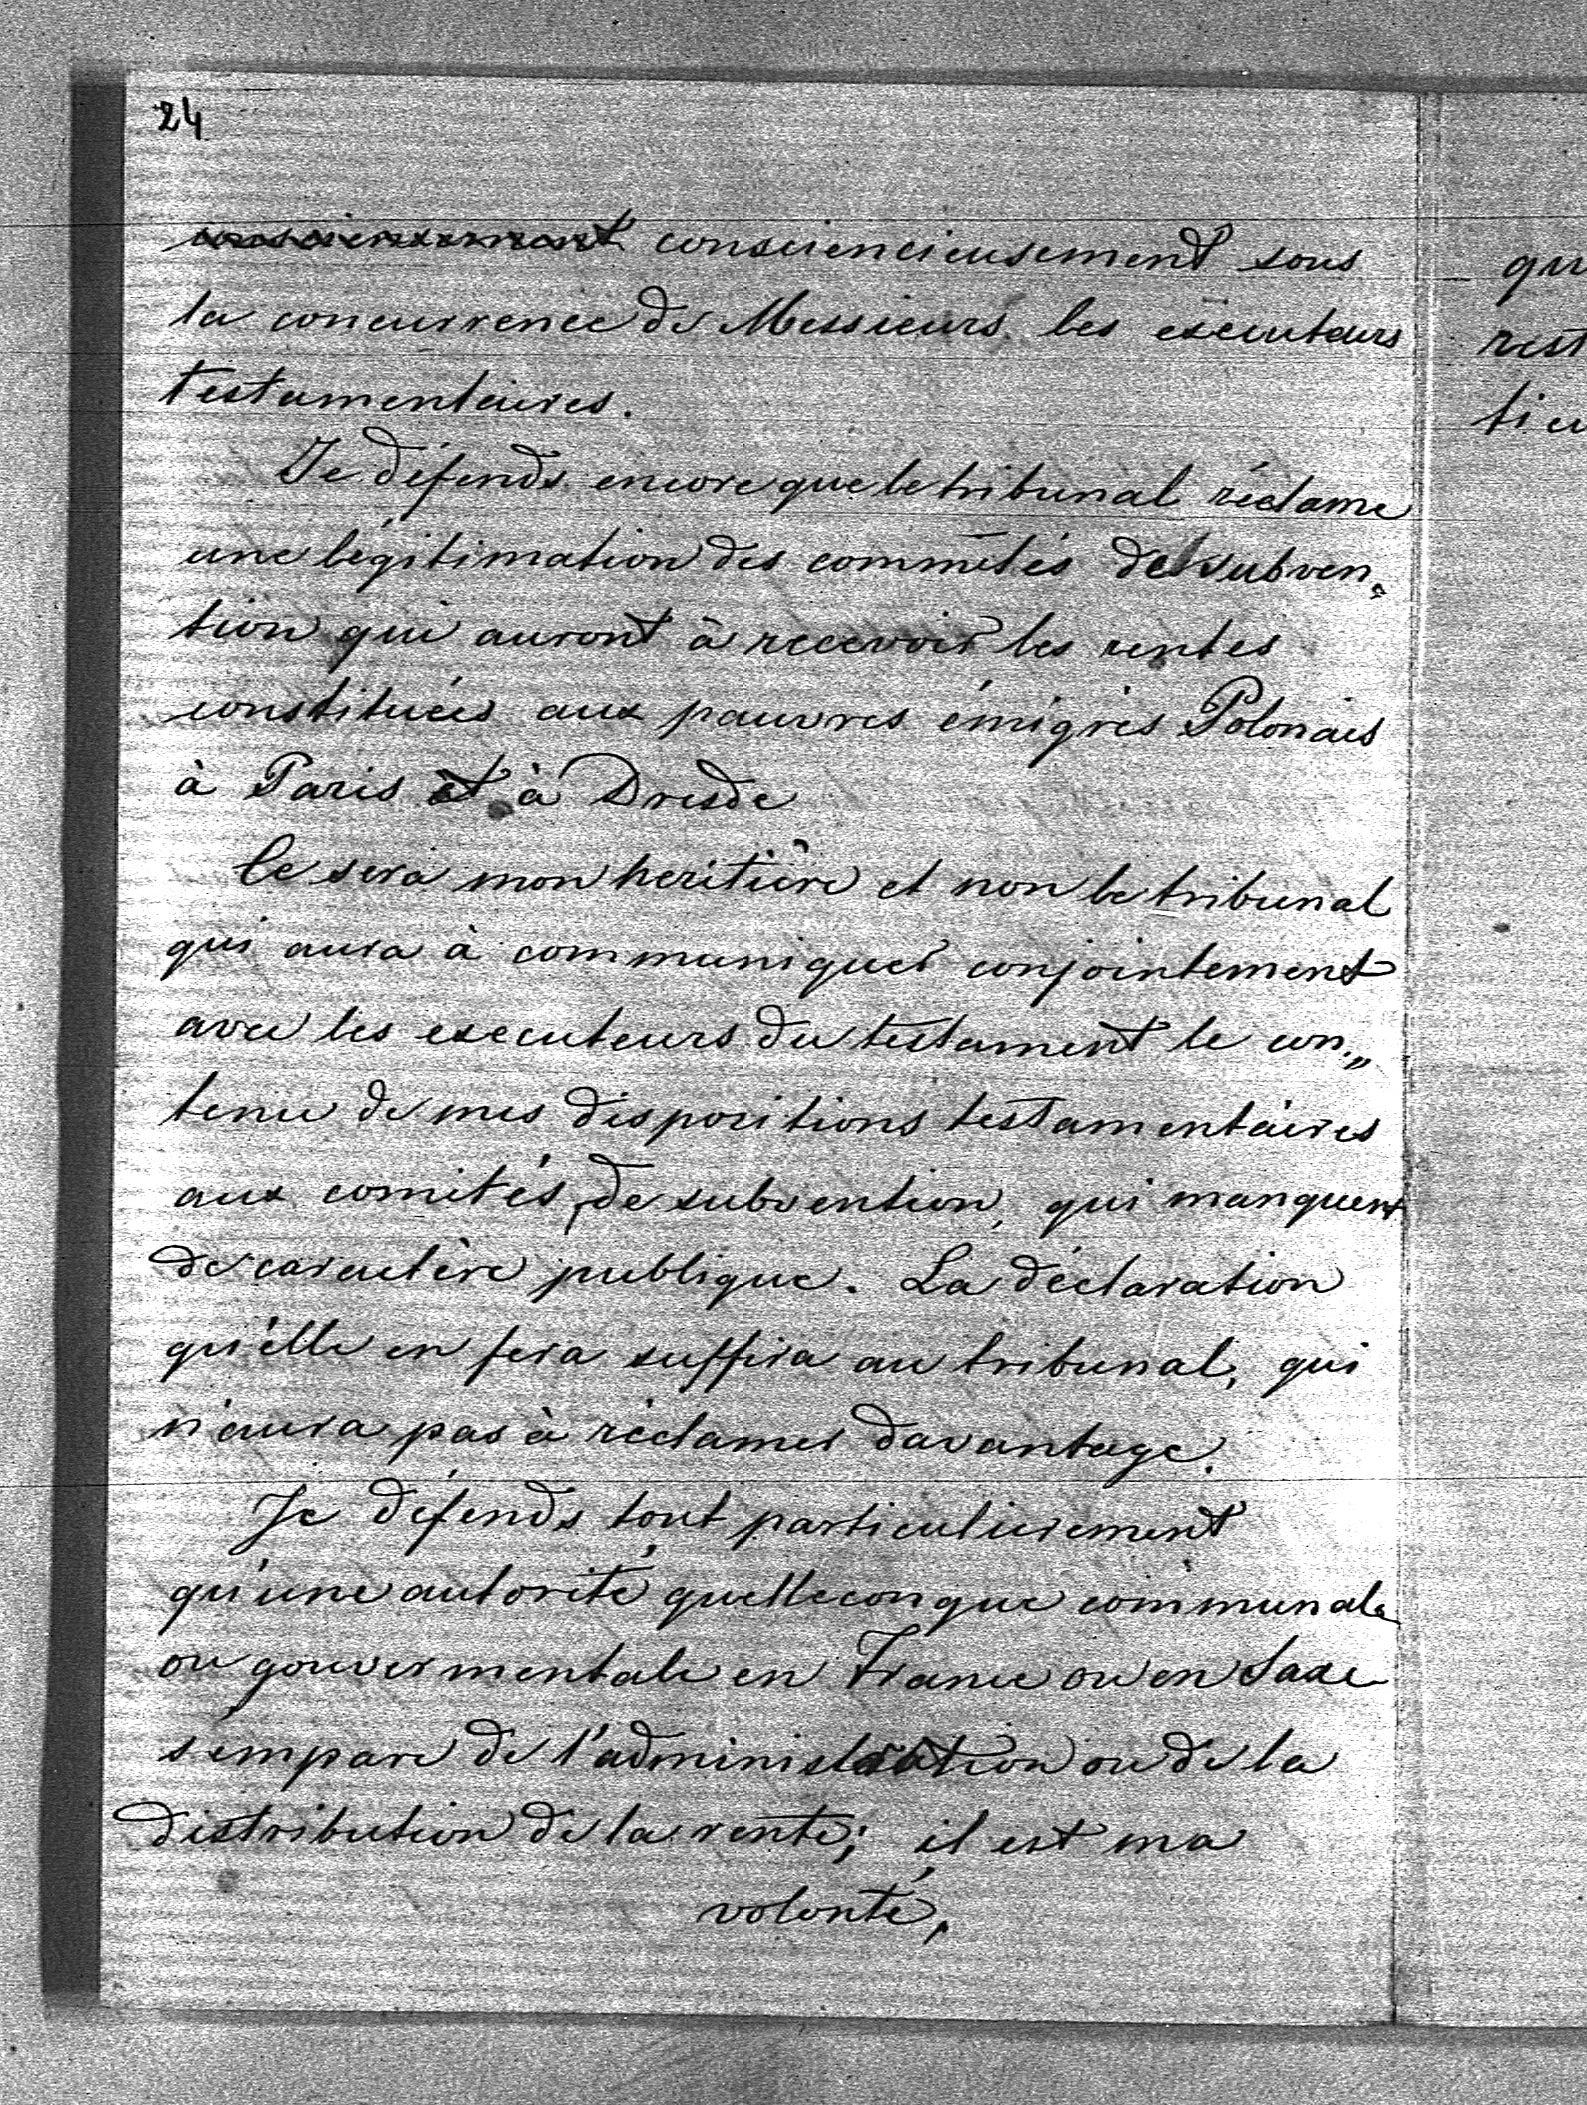 24
consciencieusement sous
la concurrence de Messieurs les exécuteurs
testamentaires.
Je défends encore que le tribunal réclame
une légitimation des commités de subven„
tion qui auront à recevoir les rentes
constituées aux pauvres émigrés Polonais
à Paris et à Dresde
Ce sera mon heritière et non le tribunal
qui aura à communiquer conjointement
avec les executeurs du testament le con„
tenu de mes dispositions testamentaires
aux comités de subvention, qui manquent
de caractère publique. La déclaration
qu'elle en fera suffira au tribunal, qui
n'aura pas à réclamer davantage.
Je défends tout particulièrement
qu'une autorité quelleconque communale
ou gouvermentale en France ou en Saxe
s'empare de l'administration ou de la
distribution de la rente; il est ma
volonté,
qu
rest